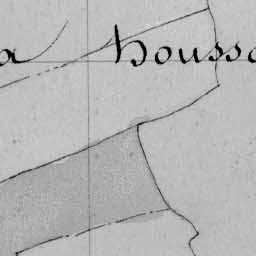 a houss